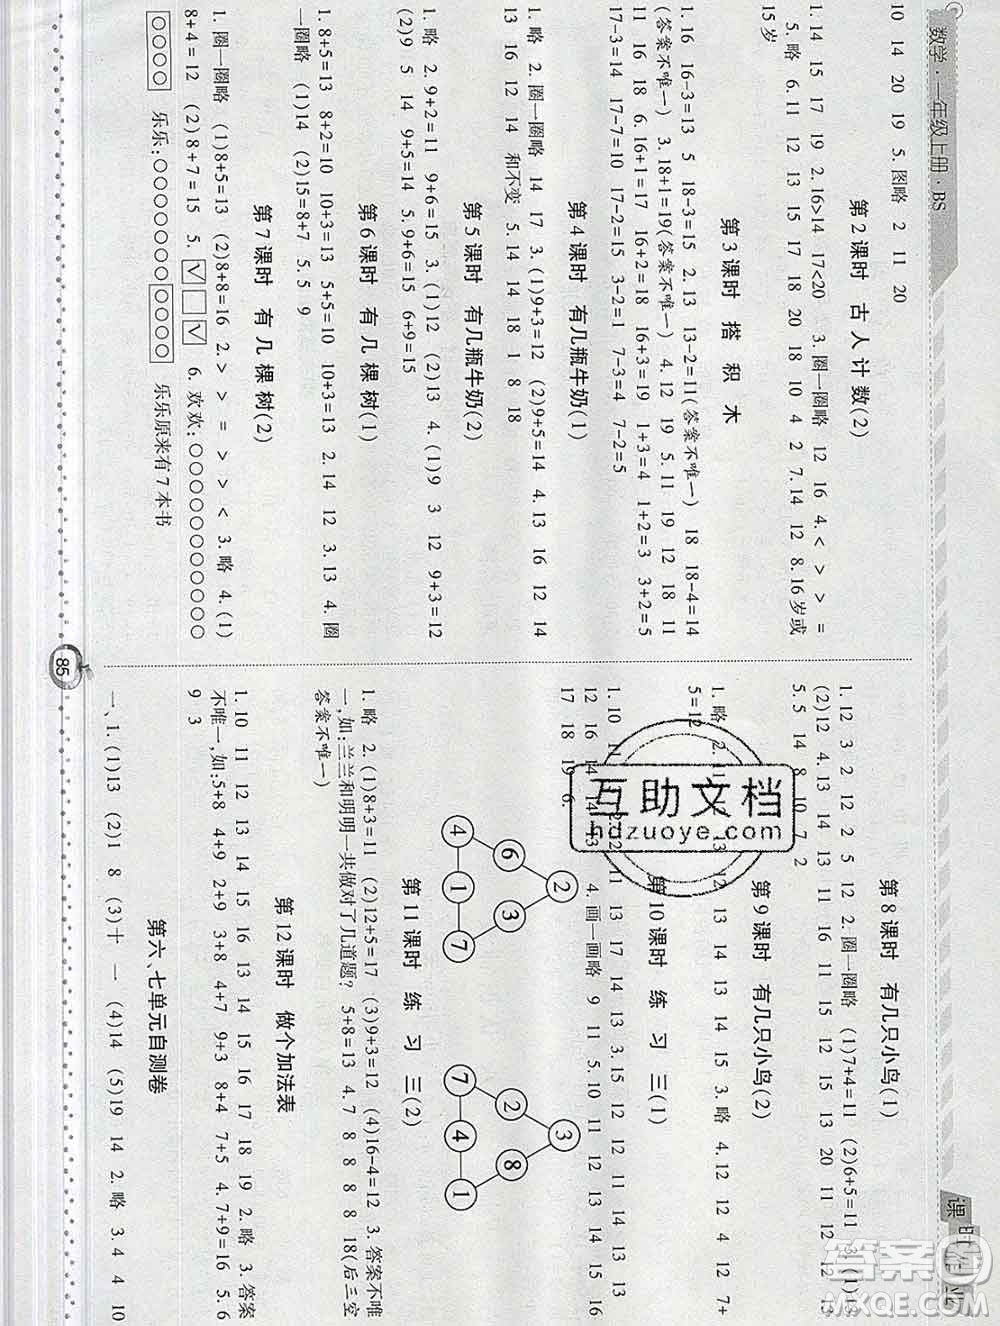 数学·一年级上册·BS
10 14 20 19 5. 图略 2 11 20
第2课时 古人计数(2)
1. 14 15 17 19 2. 16>14 17<20 3. 圈一圈略 12 16 4. < > > =
5. 略 6. 11 12 13 15 17 18 20 18 10 4 2 7. 14 12 8. 16岁或
15岁
第3课时 搭积木
1. 16 16-3=13 5 18-3=15 2. 13 13-2=11(答案不唯一) 18 18-4=14
(答案不唯一) 3. 18+1=19(答案不唯一) 4. 12 19 5. 11 12 18 11
11 16 18 6. 16+1=17 16+2=18 16+3=19 1+3=4 1+2=3
17-3=14 17-7=10 17-2=15 3-2=1 7-3=4 7-2=5 3+2=5
第4课时 有几瓶牛奶(1)
1. 略 2. 圈一圈略 14 17 3. (1)9+3=12 (2)9+5=14 4. 13 16 12 14
13 16 12 14 和不变 5. 14 14 18 1 8 18
第5课时 有几瓶牛奶(2)
1. 略 2. 9+2=11 9+4=13 3. (1)12 (2)13 4. (1)9 12 9+3=12
(2)9 5 14 9+5=14 5. 9+6=15 6+9=15
第6课时 有几棵树(1)
1. 8+5=13 8+2=10 10+3=13 5+5=10 10+3=13 2. 14 12 3. 13 4. 圈
一圈略 (1)14 (2)15=8+7 5. 5 9
第7课时 有几棵树(2)
1. 圈一圈略 (1)8+5=13 (2)8+8=16 2. > > = > > < 3. 略 4. (1)
8+4=12 (2)8+7=15 5. ☑☐☑ 6. 欢欢:○○○○○○○○○○○
○○○○ 乐乐:○○○○○○○○○○○ 乐乐原来有7本书
第8课时 有几只小鸟(1)
1. 12 3 2 12 2 5 12 2. 圈一圈略 (1)7+4=11 (2)6+5=11 3. (1)13
(2)12 4. 13 14 12 13 11 11 15 12 13 20 11 12 13
5. 5 14 8 10 7 2
第9课时 有几只小鸟(2)
12 13 14 13 14 15 3. 略 4. 12 12 4 12 7+
5=12
第10课时 练习三(1)
17 18 19 6.
2 6 3 4 1 7
3 2 8 7 4 1
第11课时 练习三(2)
1. 略 2. (1)8+3=11 (2)12+5=17 (3)9+3=12 (4)16-4=12 3. 答案不唯
一,如:兰兰和明明一共做对了几道题? 5+8=13 4. 7 8 8 8 18(后三空
答案不唯一)
第12课时 做个加法表
1. 10 11 12 13 14 15 16 13 14 15 16 17 18 19 2. 略 3. 答案
不唯一,如:5+8 4+9 2+9 3+8 4+7 9+3 8+4 7+5 4. 7+9=16 5. 6
9 3
第六、七单元自测卷
一、1. (1)13 (2)1 8 (3)十 一 (4)14 (5)19 14 2. 略 3. 4 4 10
85
互助文档
hdzuoye.com
答案
MXQE.COM